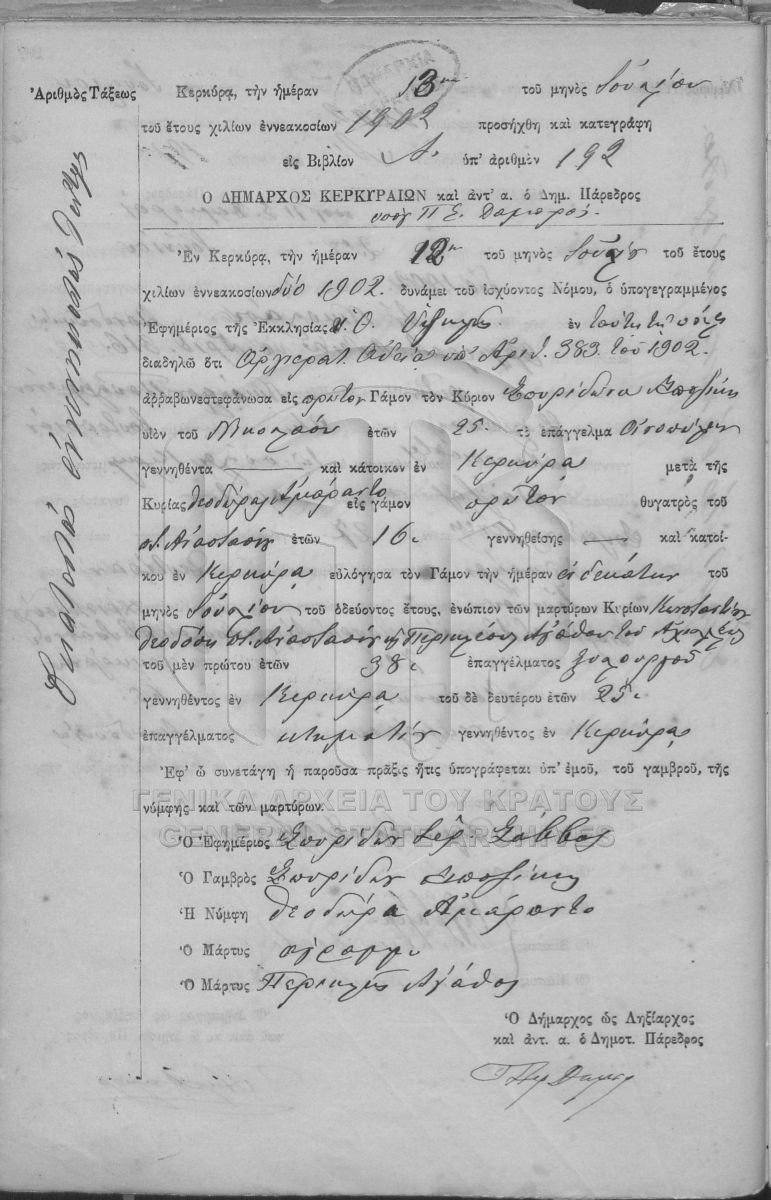 Ἀριθμὸς Τάξεως
Ἑκατοστὸς ἐννενηκοστὸς
Κερκύρᾳ, τὴν ἡμέραν 13ην τοῦ μηνὸς Ἰουλίου
τοῦ ἔτους χιλίων ἐννεακοσίων 1902 προσήχθη καὶ κατεγράφη
εἰς Βιβλίον Α. ὑπ' ἀριθμὸν 192
Ο ΔΗΜΑΡΧΟΣ ΚΕΡΚΥΡΑΙΩΝ καὶ ἀντ' α. ὁ Δημ. Πάρεδρος
Ἐν Κερκύρᾳ, τὴν ἡμέραν 12ην τοῦ μηνὸς τοῦ ἔτους
χιλίων ἐννεακοσίων δύο 1902. δυνάμει τοῦ ἰσχύοντος Νόμου, ὁ ὑπογεγραμμένος
Ἐφημέριος τῆς Ἐκκλησίας ἐν ταύτῃ τῇ πόλει
διαδηλῶ ὅτι Ἀρχιερατ. Ἀδείᾳ ὑπ' Ἀριθ. 383. τοῦ 1902.
ἀρραβωνεστεφάνωσα εἰς πρῶτον Γάμον τὸν Κύριον Σπυρίδωνα
υἱὸν τοῦ Νικολάου ἐτῶν 25. τὸ ἐπάγγελμα Οἰνοπώλην
γεννηθέντα καὶ κάτοικον ἐν Κερκύρᾳ μετὰ τῆς
Κυρίας Θεοδώρας Ἀμάραντο εἰς γάμον πρῶτον θυγατρὸς τοῦ
π. Ἀναστασίου ἐτῶν 16. γεννηθείσης καὶ κατοί-
κου ἐν Κερκύρᾳ εὐλόγησα τὸν Γάμον τὴν ἡμέραν δεκάτην τοῦ
μηνὸς Ἰουλίου τοῦ ὁδεύοντος ἔτους, ἐνώπιον τῶν μαρτύρων Κυρίων Κωνσταντίνου
π. Ἀναστασίου Περικλέους Ἀγάθου τοῦ
τοῦ μὲν πρώτου ἐτῶν 38. ἐπαγγέλματος ξυλουργοῦ
γεννηθέντος ἐν Κερκύρᾳ τοῦ δὲ δευτέρου ἐτῶν 25.
ἐπαγγέλματος κτηματίου γεννηθέντος ἐν Κερκύρᾳ
Ἐφ' ᾧ συνετάγη ἡ παροῦσα πρᾶξις ἥτις ὑπογράφεται ὑπ' ἐμοῦ, τοῦ γαμβροῦ, τῆς
νύμφης καὶ τῶν μαρτύρων.
ΓΕΝΙΚΑ ΑΡΧΕΙΑ ΤΟΥ ΚΡΑΤΟΥΣ
GENERAL STATE ARCHIVES
Ὁ Ἐφημέριος Σπυρίδων Ἱερ. Σάββας
Ὁ Γαμβρὸς Σπυρίδων
Ἡ Νύμφη Θεοδώρα Ἀμάραντο
Ὁ Μάρτυς
Ὁ Μάρτυς Περικλῆς Ἀγάθος
Ὁ Δήμαρχος ὡς Ληξίαρχος
καὶ ἀντ. α. ὁ Δημοτ. Πάρεδρος